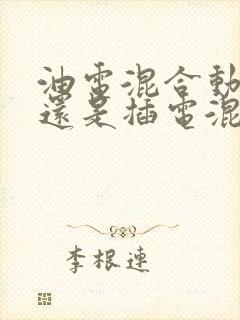 油電混合動
還是插電混
李根連